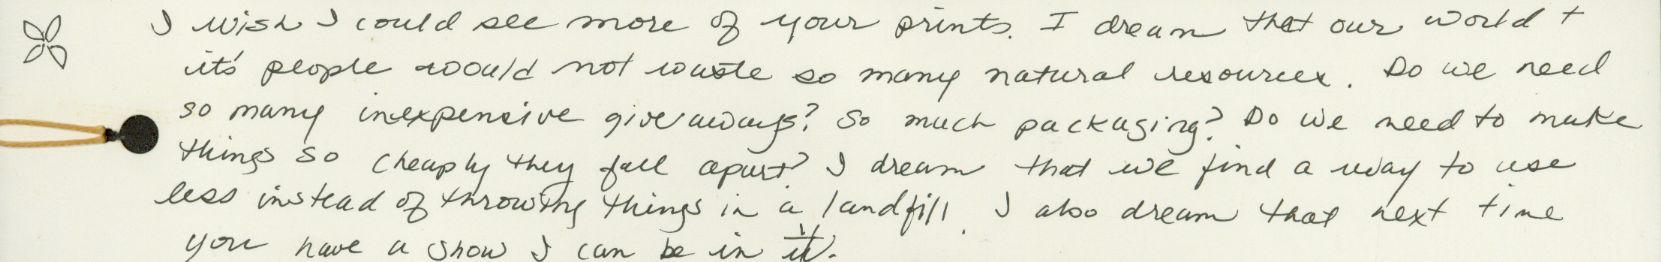 I wish I could see more of your prints. I dream that our world +
it's people would not waste so many natural resources. Do we need
so many inexpensive giveaways? So much packaging? Do we need to make
things so cheaply they fall apart? I dream that we find a way to use
less instead of throwing things in a landfill. I also dream that next time
you have a show I can be in it.